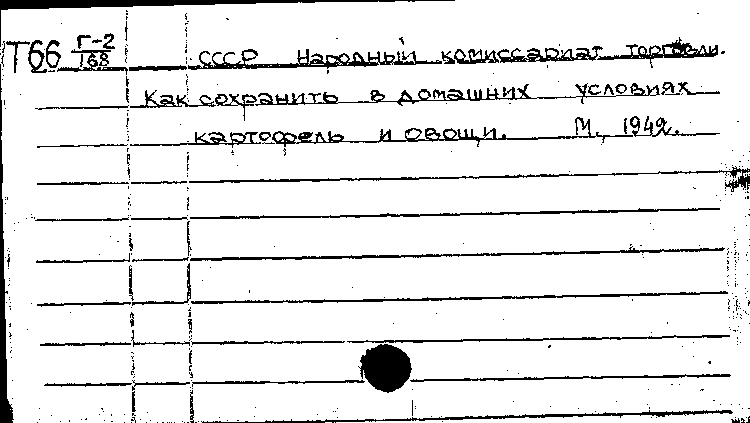 Т66 Г-2/168 СССР Народный комиссариат торговли.
Как сохранить в домашних условиях
картофель и овощи. М., 1942.